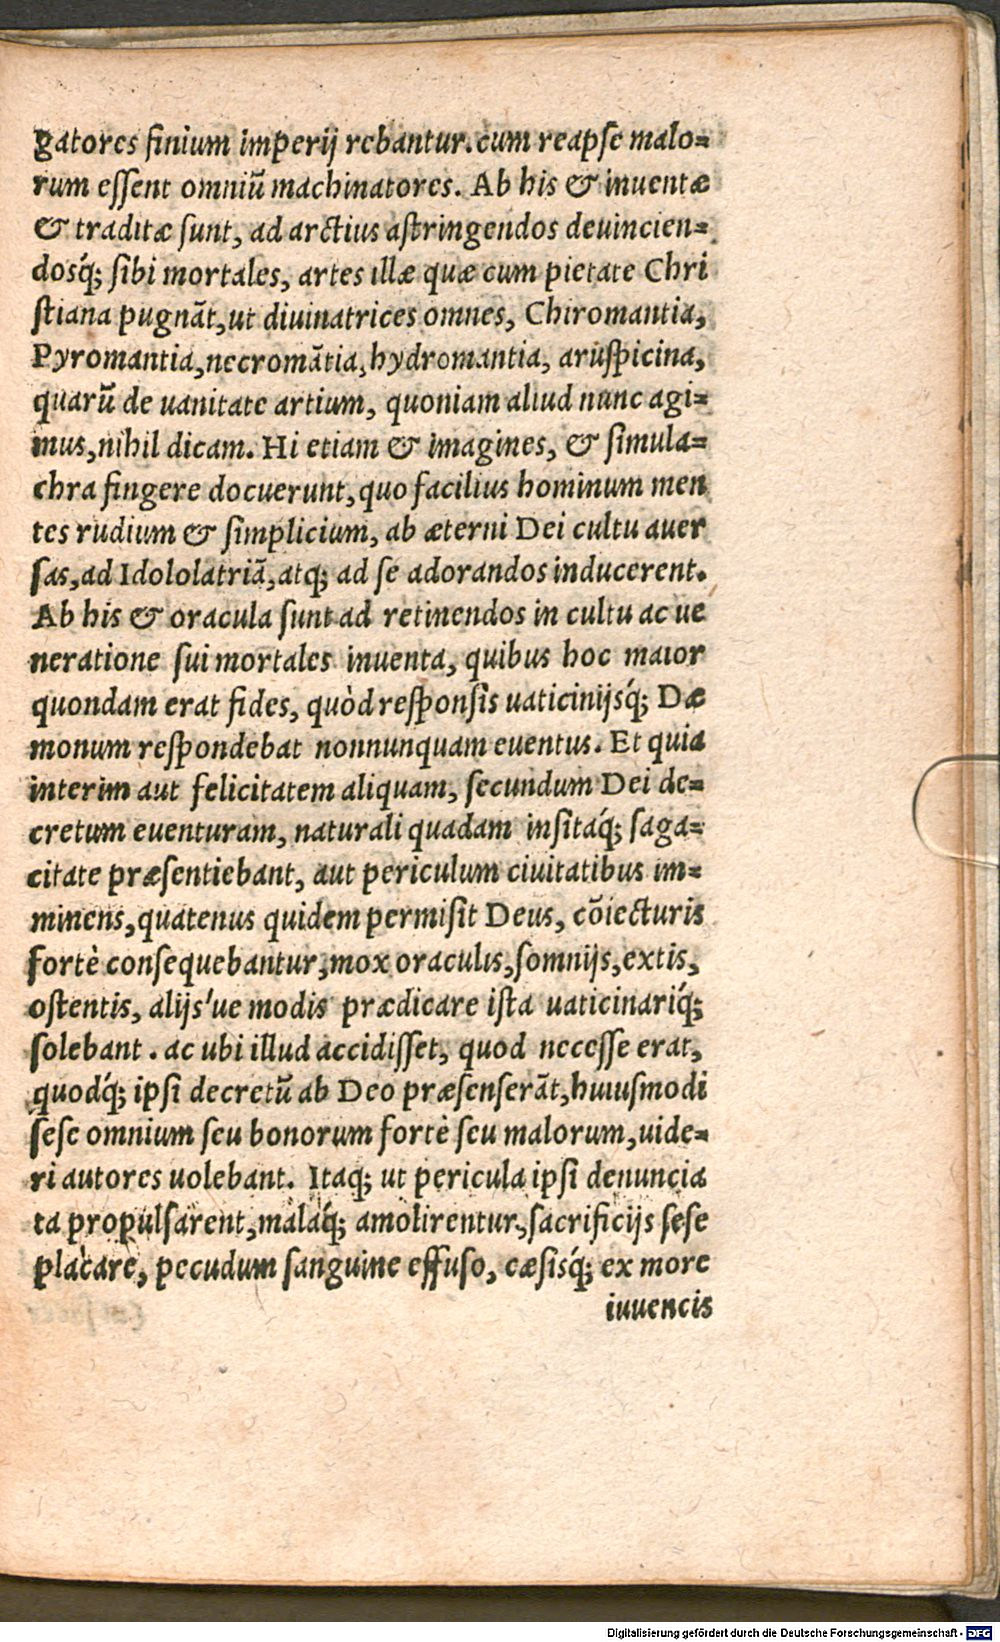 gatores finium imperij rebantur. cum reapſe malo=
rum eſſent omniũ machinatores. Ab his & inuentæ
& traditæ ſunt, ad arctius aſtringendos deuincien=
dosq́; ſibi mortales, artes illæ quæ cum pietate Chri
ſtiana pugnãt, ut diuinatrices omnes, Chiromantia,
Pyromantia, necromãtia, hydromantia, aruſpicina,
quarũ de uanitate artium, quoniam aliud nunc agi=
mus, nihil dicam. Hi etiam & imagines, & ſimula=
chra fingere docuerunt, quo facilius hominum men
tes rudium & ſimplicium, ab æterni Dei cultu auer
ſas, ad Idololatriã, atq; ad ſe adorandos inducerent.
Ab his & oracula ſunt ad retinendos in cultu ac ue
neratione ſui mortales inuenta, quibus hoc maior
quondam erat fides, quòd reſponſis uaticinijsq́; Dæ
monum reſpondebat nonnunquam euentus. Et quia
interim aut felicitatem aliquam, ſecundum Dei de=
cretum euenturam, naturali quadam inſitáq́; ſaga=
citate præſentiebant, aut periculum ciuitatibus im=
minens, quatenus quidem permiſit Deus, cõiecturis
fortè conſequebantur, mox oraculis, ſomnijs, extis,
oſtentis, alijs'ue modis prædicare iſta uaticinariq́;
ſolebant. ac ubi illud accidiſſet, quod neceſſe erat,
quodq́; ipſi decretũ ab Deo præſenſerãt, huiuſmodi
ſeſe omnium ſeu bonorum fortè ſeu malorum, uide=
ri autores uolebant. Itaq; ut pericula ipſi denuncia
ta propulſarent, malaq́; amolirentur, ſacrificijs ſeſe
placare, pecudum ſanguine effuſo, cæſisq́; ex more
iuuencis
Digitalisierung gefördert durch die Deutsche Forschungsgemeinschaft - DFG